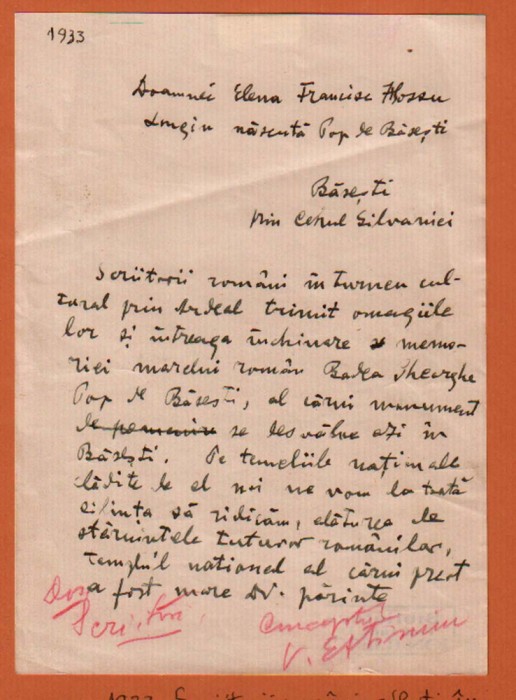 1933
Doamnei Elena Francisc Hossu
Longin născută Pop de Băsești
Băsești
prin Cehul Silvaniei
Scriitorii români în turneu cul-
tural prin Ardeal trimit omagiile
lor și întreaga închinare memo-
riei marelui român Badea Gheorghe
Pop de Băsești, al cărui monument
de pomenire se desvălue azi în
Băsești. Pe temeliile naționale
clădite de el noi ne vom da toată
silința să ridicăm, alăturea de
stăruințele tuturor românilor,
templul național al cărui preot
a fost mare Dv. părinte
Scriitori
V. Eftimiu
1933